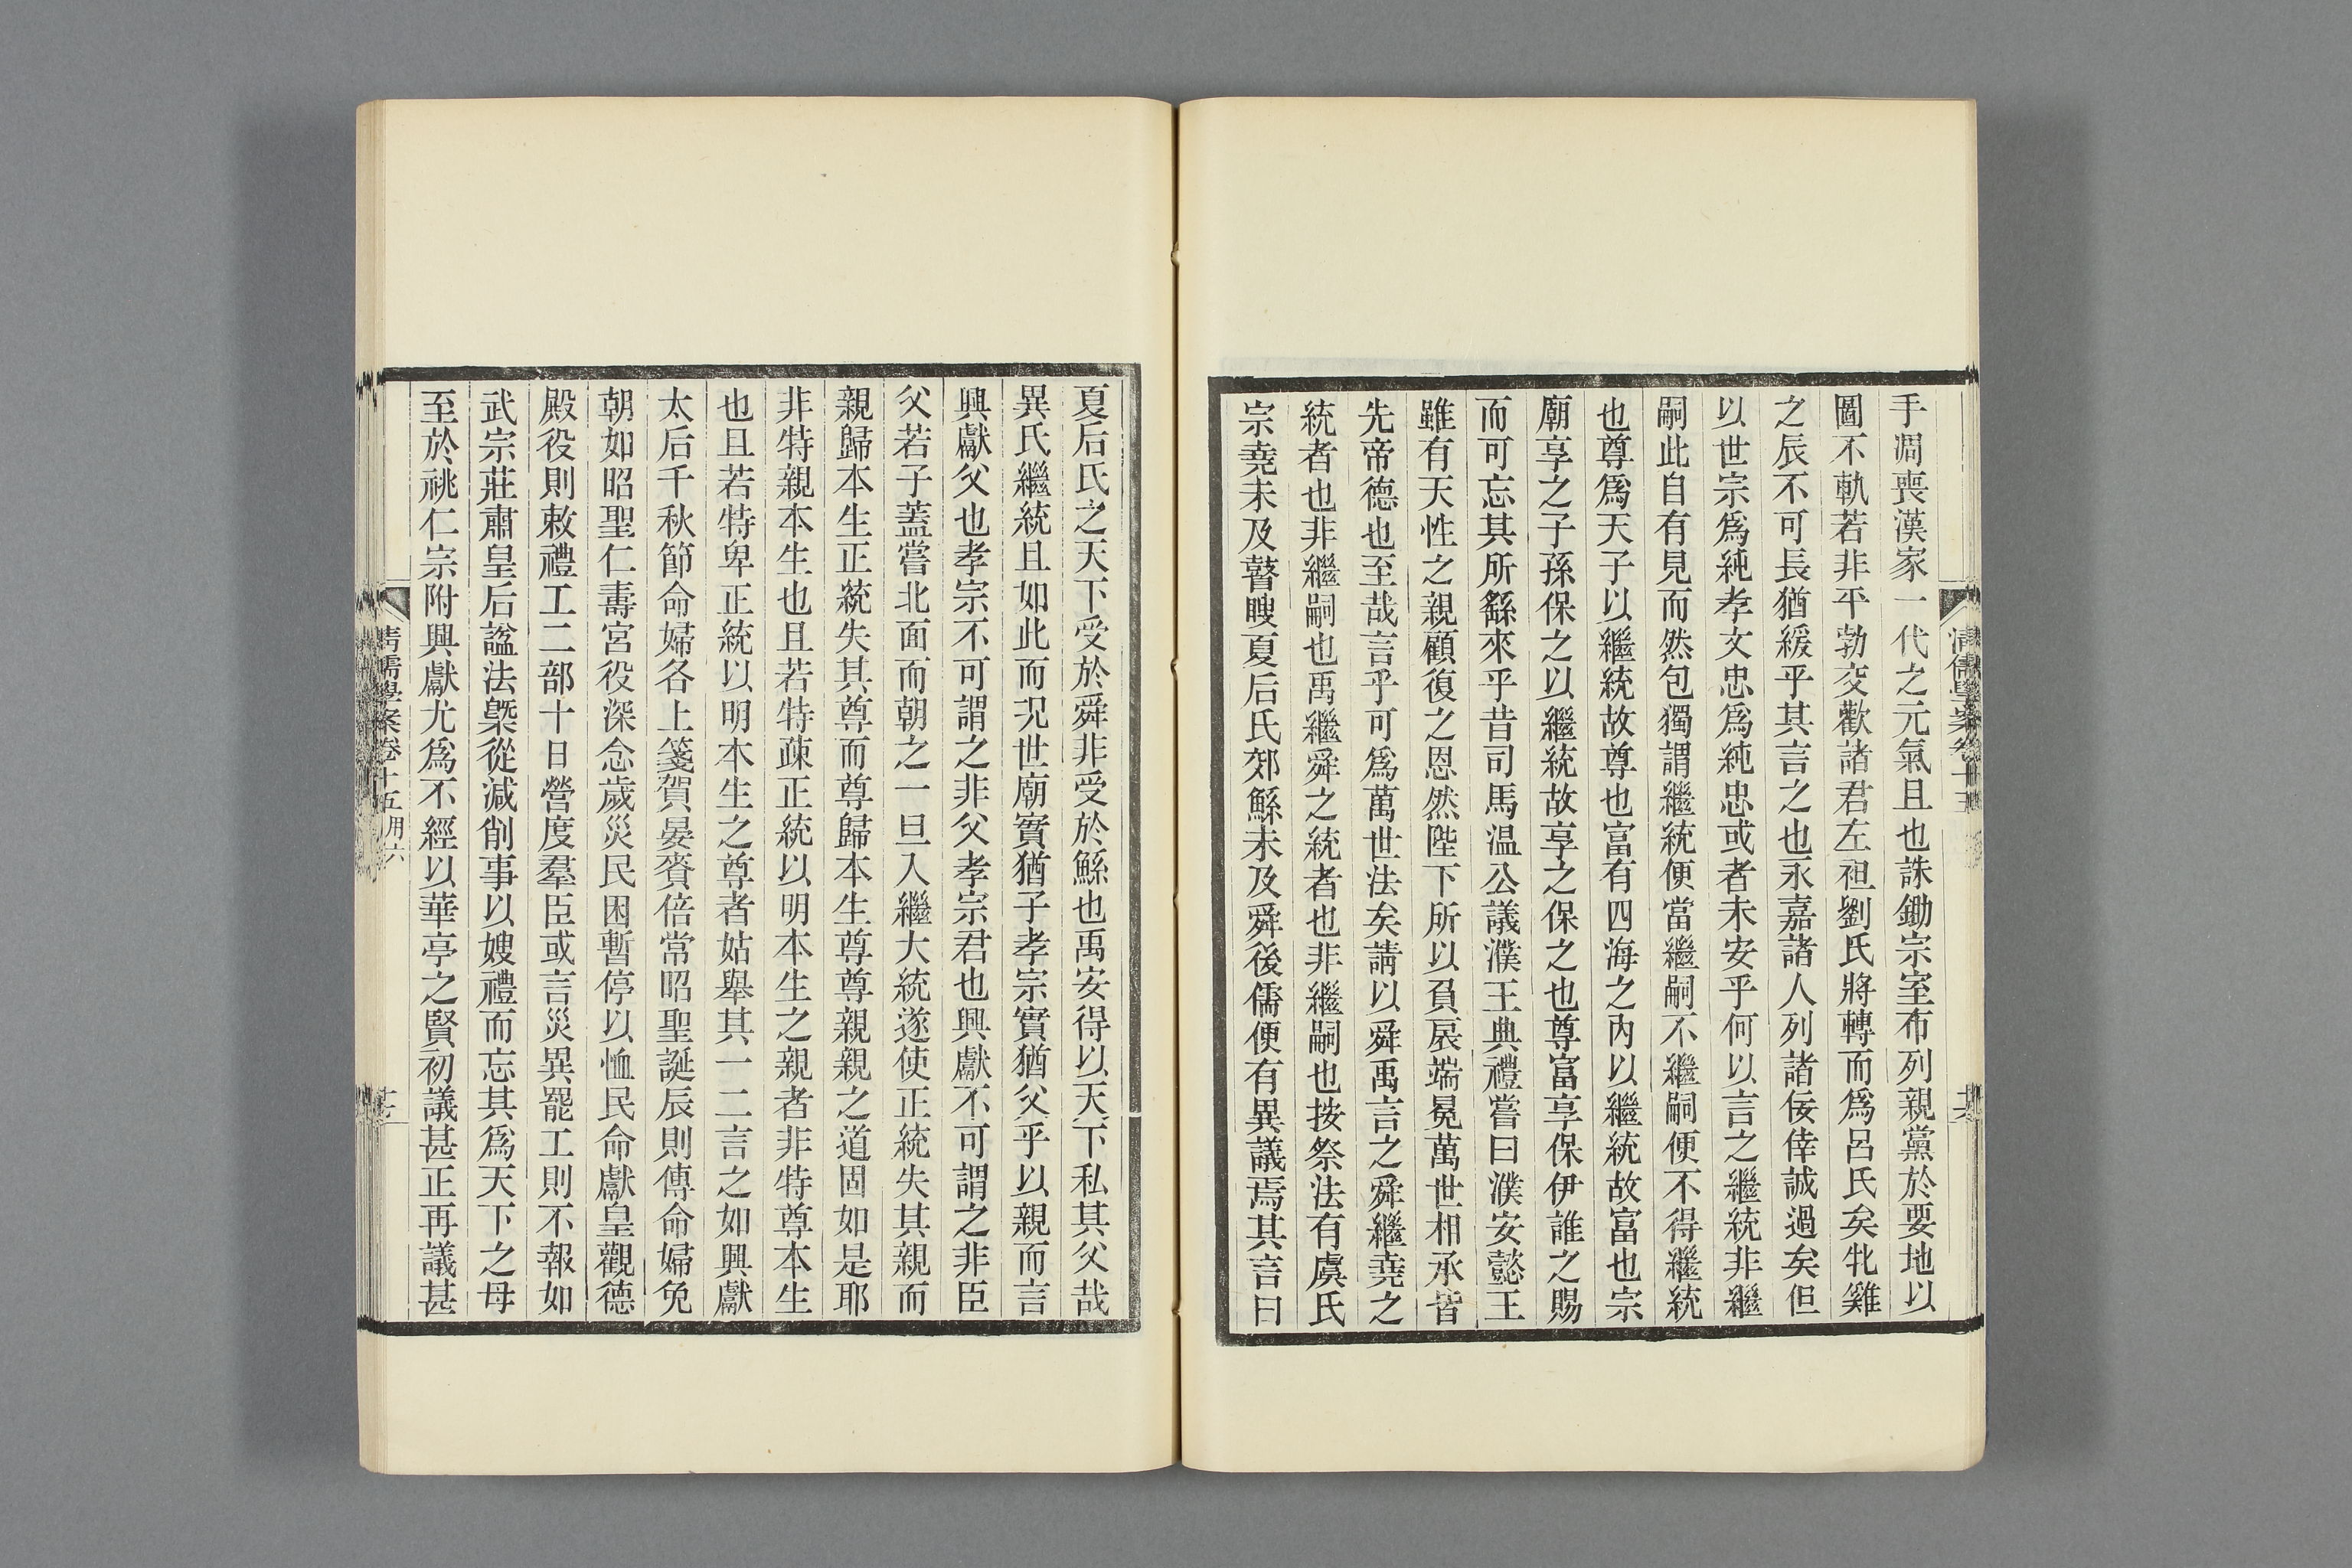 手凋喪漢家一代之元氣且也誅鋤宗室布列親黨於要地以
圖不軌若非平勃交歡諸君左袒劉氏將轉而爲呂氏矣牝雞
之辰不可長猶緩乎其言之也永嘉諸人列諸佞倖誠過矣但
以世宗爲純孝文忠爲純忠或者未安乎何以言之繼統非繼
嗣此自有見而然包獨謂繼統便當繼嗣不繼嗣便不得繼統
也尊爲天子以繼統故尊也富有四海之內以繼統故富也宗
廟享之子孫保之以繼統故享之保之也尊富享保伊誰之賜
而可忘其所繇來乎昔司馬温公議濮王典禮嘗曰濮安懿王
雖有天性之親顧復之恩然陛下所以負扆端冕萬世相承皆
先帝德也至哉言乎可爲萬世法矣請以舜禹言之舜繼堯之
統者也非繼嗣也禹繼舜之統者也非繼嗣也按祭法有虞氏
宗堯未及瞽瞍夏后氏郊鯀未及舜後儒便有異議焉其言曰
清儒學案卷十五
夏后氏之天下受於舜非受於鯀也禹安得以天下私其父哉
異氏繼統且如此而况世廟實猶子孝宗實猶父乎以親而言
興獻父也孝宗不可謂之非父孝宗君也興獻不可謂之非臣
父若子蓋嘗北面而朝之一旦入繼大統遂使正統失其親而
親歸本生正統失其尊而尊歸本生尊尊親親之道固如是耶
非特親本生也且若特疎正統以明本生之親者非特尊本生
也且若特卑正統以明本生之尊者姑舉其一二言之如興獻
太后千秋節命婦各上箋賀晏賚倍常昭聖誕辰則傳命婦免
朝如昭聖仁壽宮役深念歲災民困暫停以恤民命獻皇觀德
殿役則敕禮工二部十日營度羣臣或言災異罷工則不報如
武宗莊肅皇后諡法槩從減削事以嫂禮而忘其爲天下之母
至於祧仁宗附興獻尤爲不經以華亭之賢初議甚正再議甚
清儒學案卷十五 用六